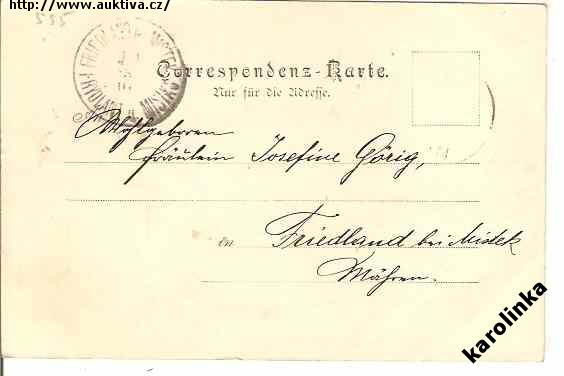 http://www.auktiva.cz/
Correspondenz-Karte.
Nur für die Adresse.
Wohlgeboren
Fräulein Josefine Görig,
in Friedland bei Mistek
Mähren.
karolinka